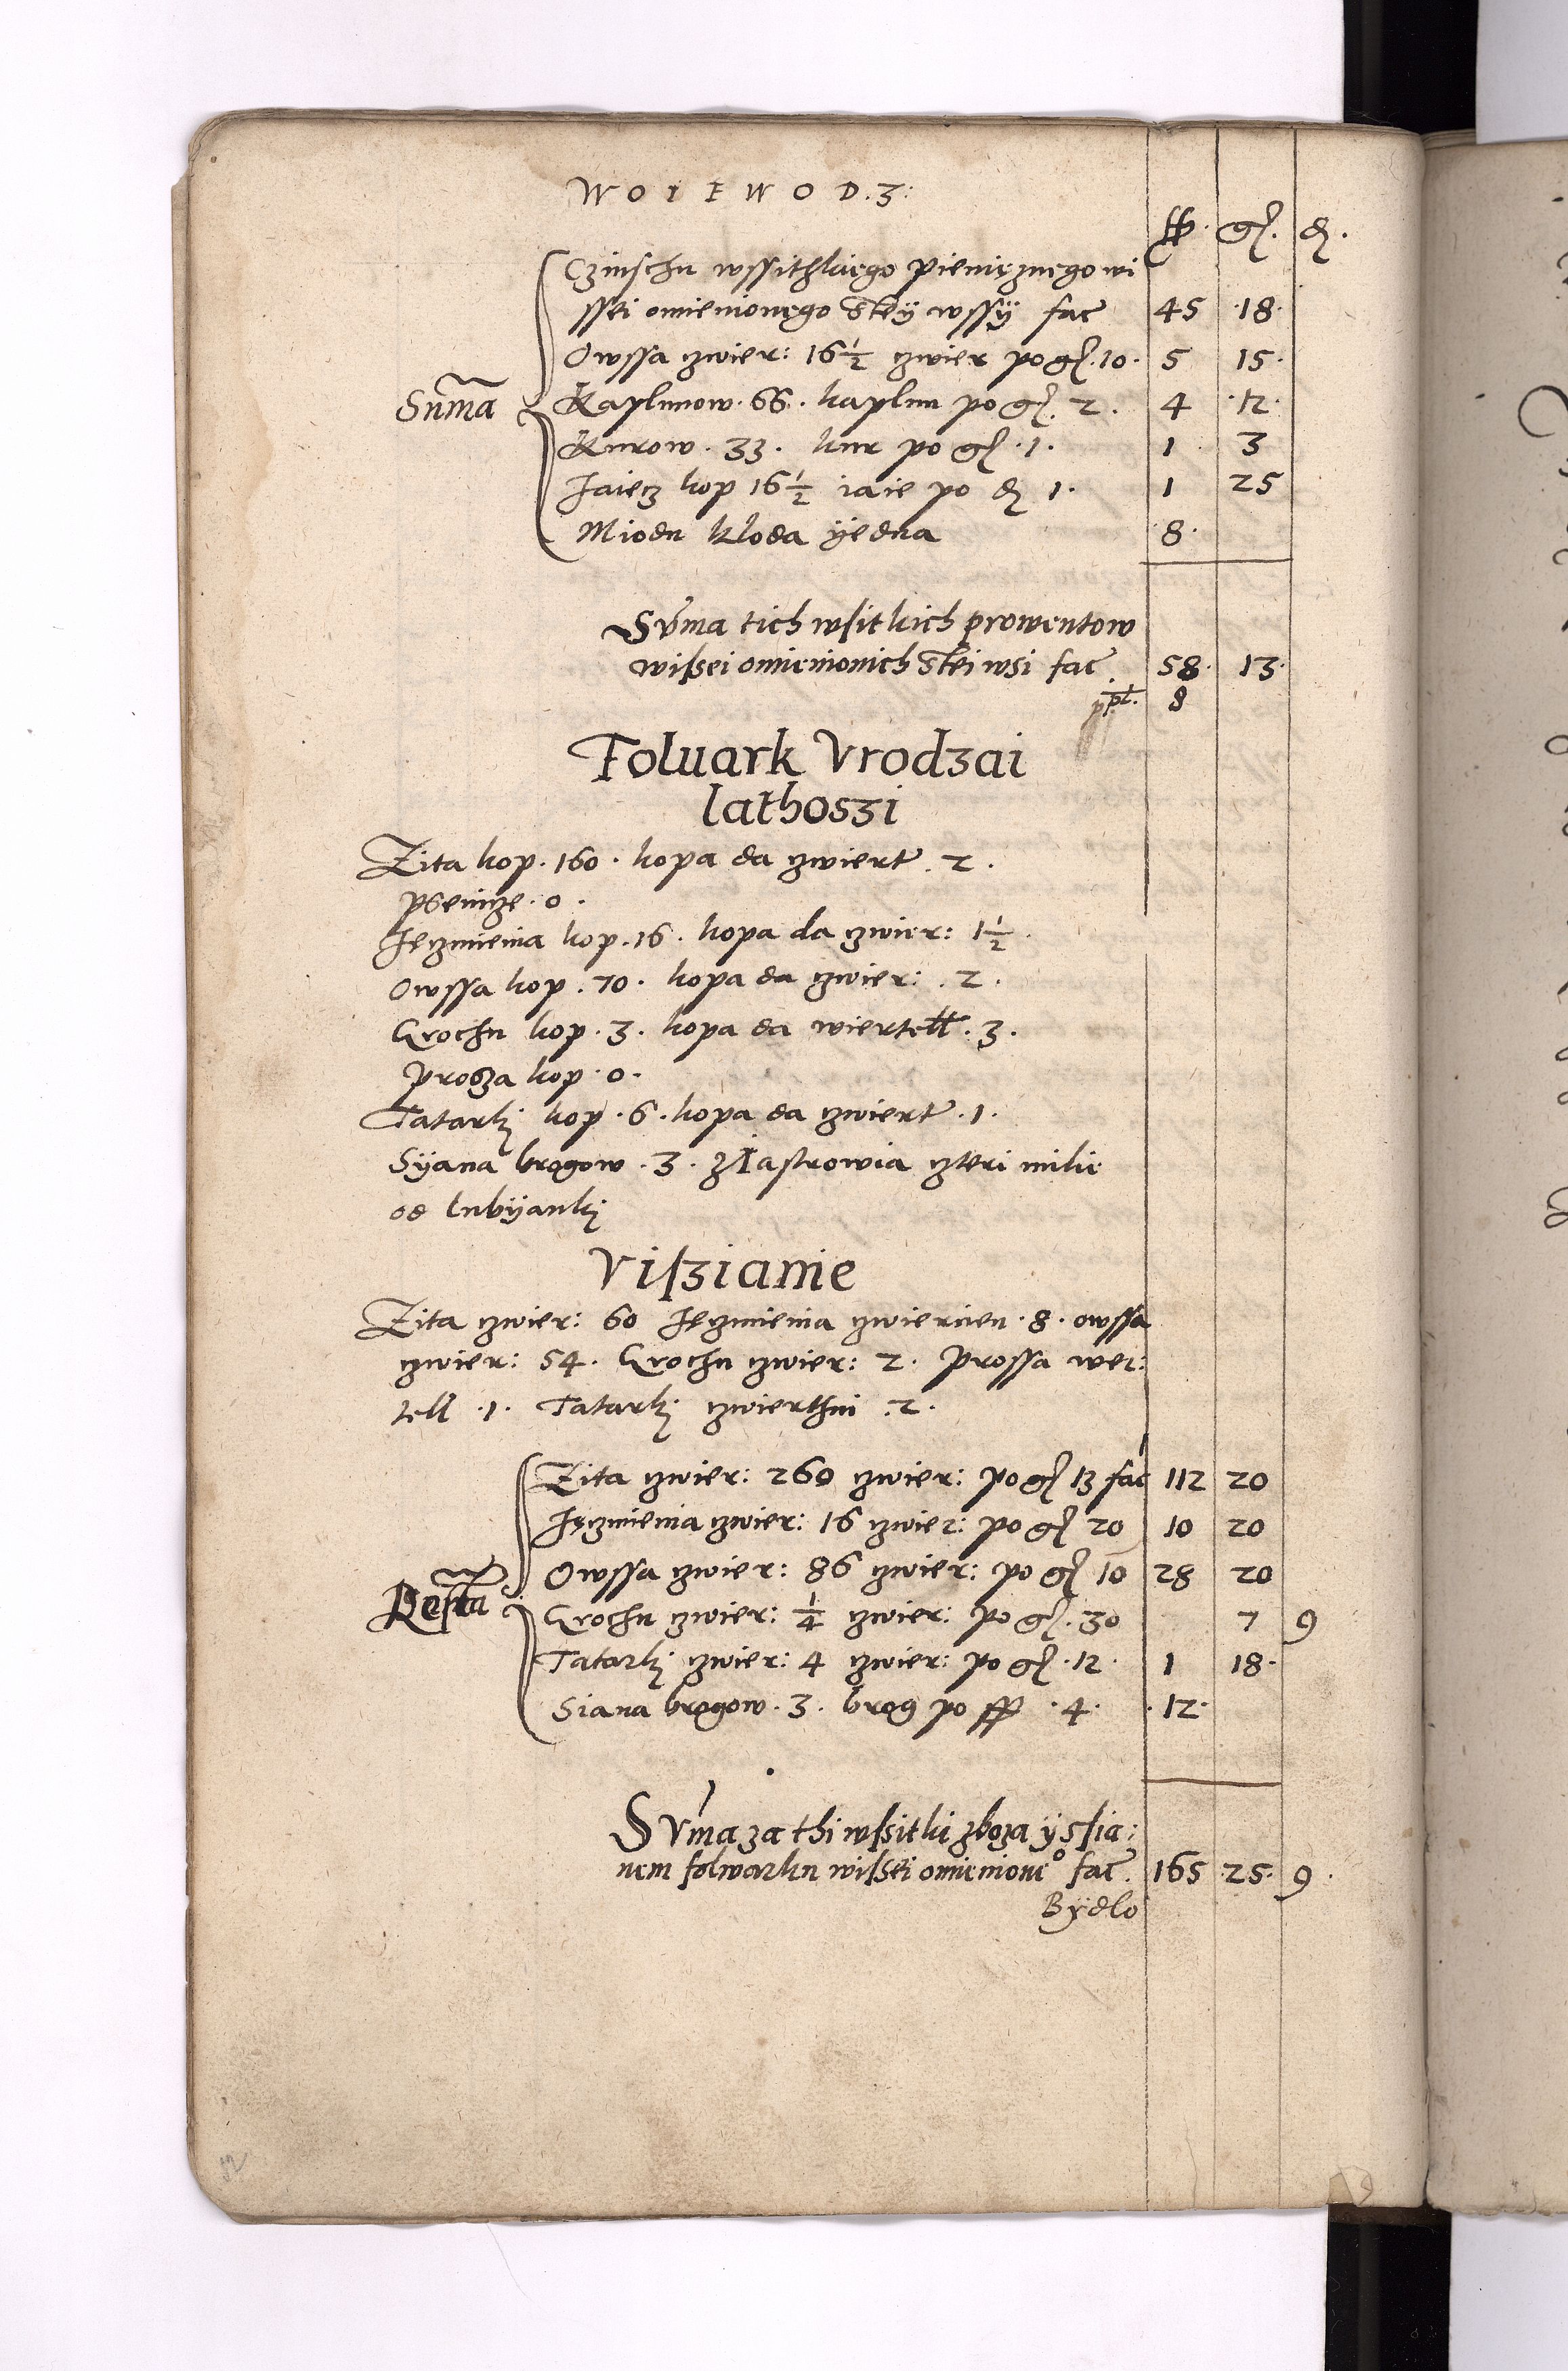 WOIEWOD.3:
ff. gſ. ₰.
Czinschu wssithkiego pienięznego wi
ssei omienionego Stey wssÿ fac 45 18
Owssa czwier: 16 1/2 czwier po gſ. 10. 5 15
Kaplunow. 66. kaplun po gſ. 2. 4 12
Suma
Kurow. 33. kur po gſ. 1. 1 3
Jaiecz kop 16 1/2 iaie po ₰ 1. 1 25
Miodu kloda ÿedna 8
Suma tich wsitkich prowentow
wissei omienionich Stei wsi fac. 58 13
8
Folwark Vrodzai
lathoszi
Zita kop. 160. kopa da czwiert. 2.
psenicze. 0.
Jęczmienia kop. 16. kopa da czwier: 1 1/2
Owssa kop. 70. kopa da czwier: 2.
Grochu kop. 3. kopa da wiertell. 3.
Prosza kop. 0.
Tatarki kop. 6. kopa da czwiert. 1.
Syana brogow. 3. z Jastrowia czteri mile
od lubÿanki
Viszianie
Zita czwier: 60 Jęczmienia czwiercien. 8. owssa
czwier: 54. Grochu czwier: 2. Prossa wer:
tell. 1. Tatarki czwierthni. 2.
Zita czwier: 260 czwier: po gſ 13 fac 112 20
Jęczmienia czwier: 16 czwier: po gſ 20 10 20
Owssa czwier: 86 czwier: po gſ 10 28 20
Resta
Grochu czwier: 1/4 czwier: po gſ. 30 7 9
Tatarki czwier: 4 czwier: po gſ. 12. 1 18
Siana brogow. 3. brog po ff. 4. 12
Suma za thi wssitki zboza ÿ s sia:
nem folwarku wissei omienione° fac. 165 25 9
Bÿdlo